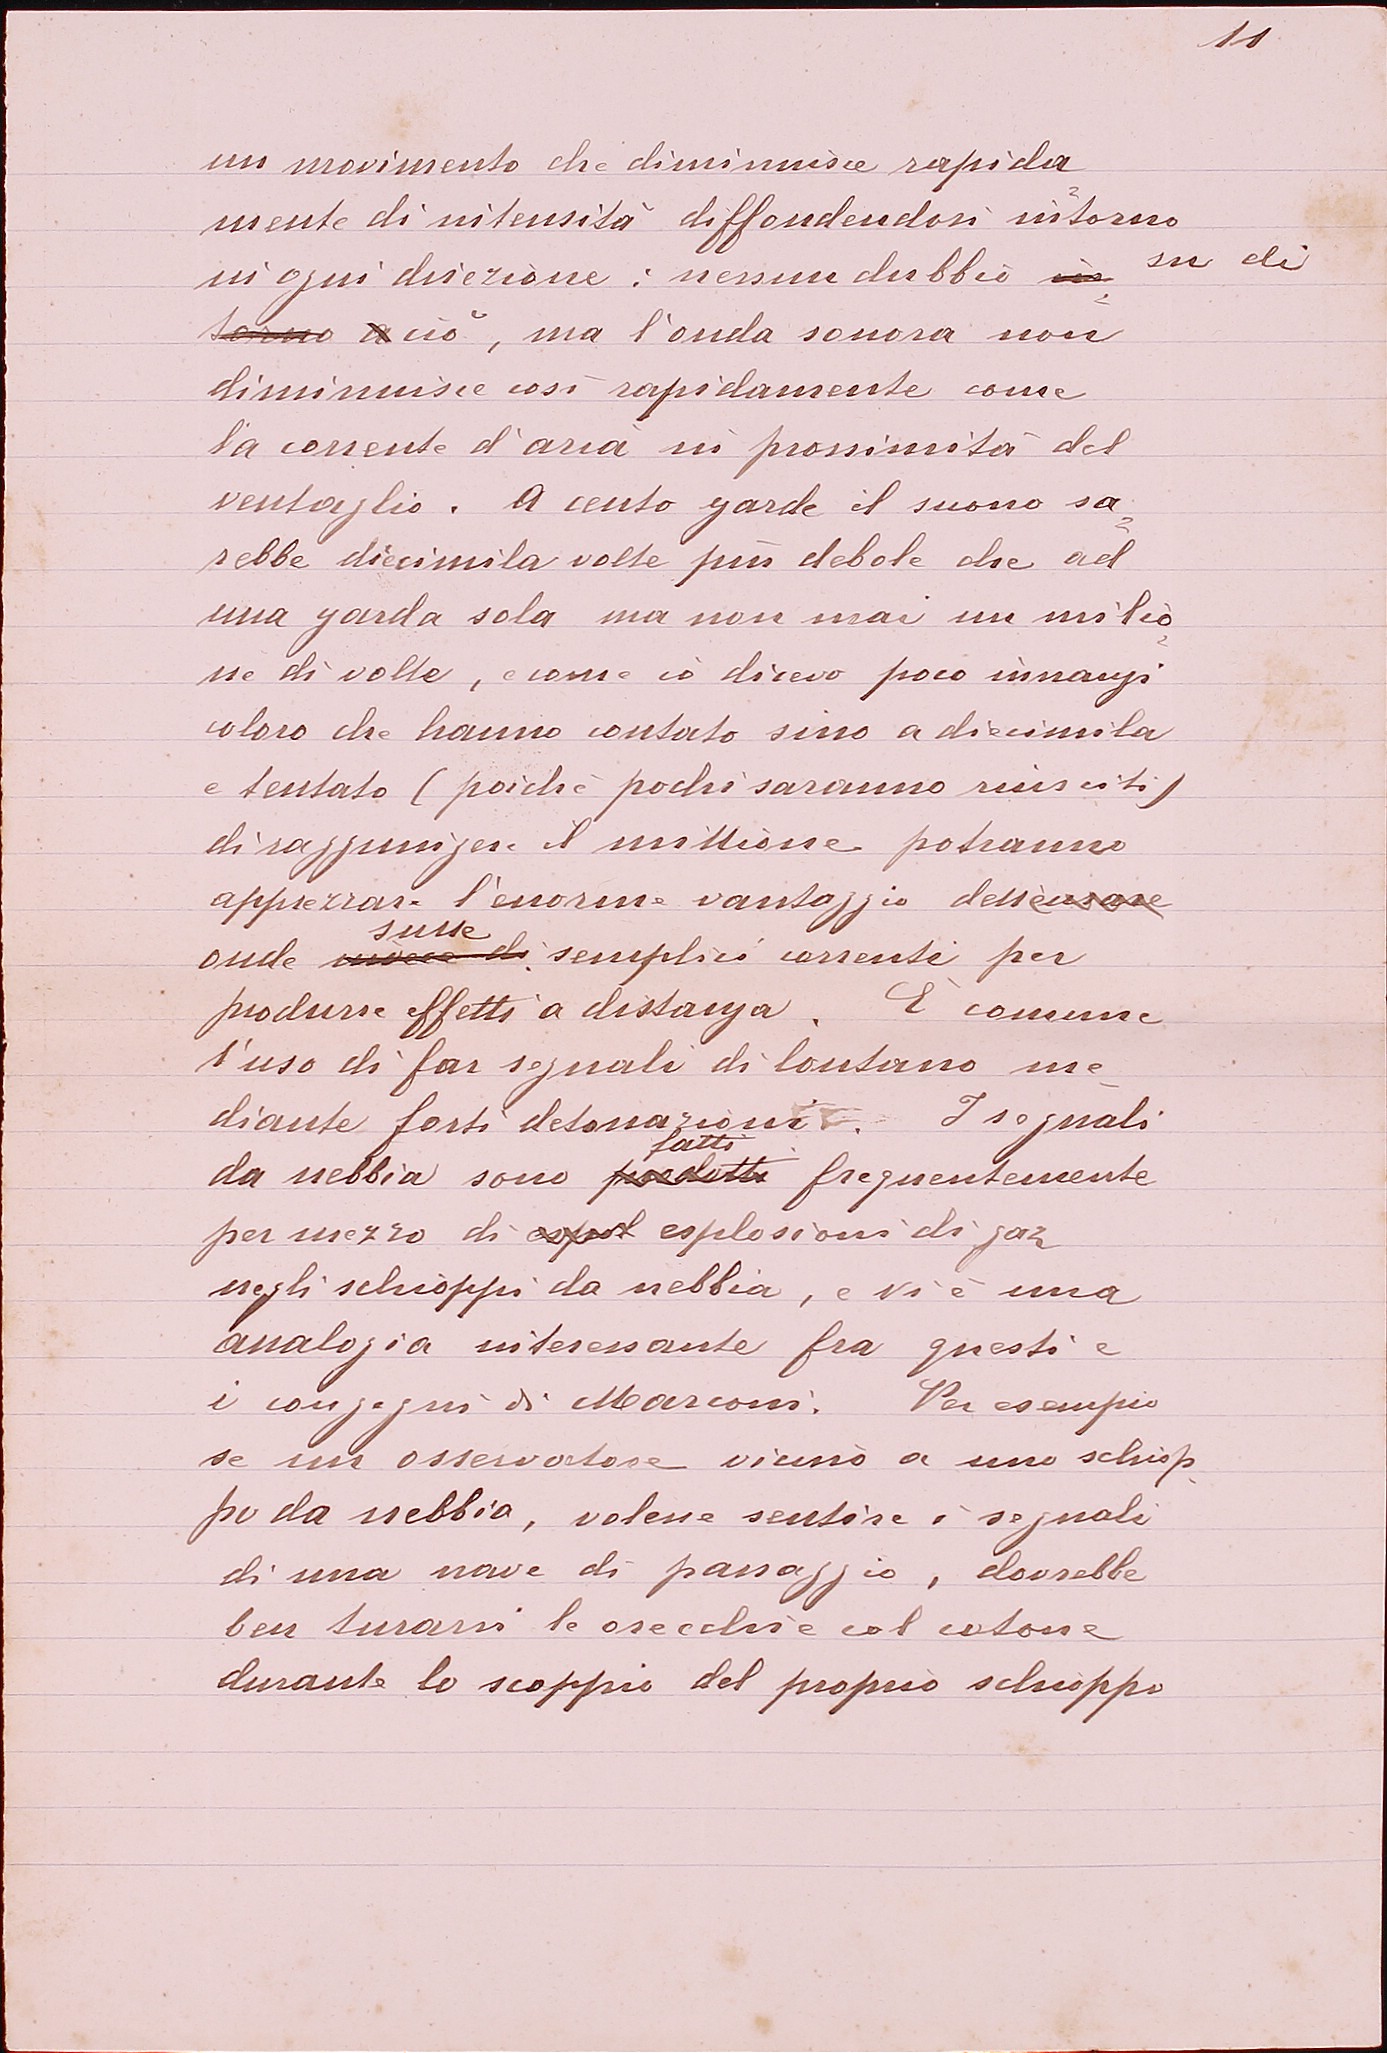 11
un movimento che diminuisce rapida
mente di intensità diffondendosi in=torno
in ogni direzione: nessun dubbio in= su di
torno a ciò, ma l'onda sonora non
diminuisce così rapidamente come
la corrente d'aria in prossimità del
ventaglio. A cento yarde il suono sa=
rebbe diecimila volte più debole che ad
una yarda sola ma non mai un milio=
ne di volte, e come io dicevo poco innanzi
coloro che hanno contato sino a diecimila
e tentato (poichè pochi saranno riusciti)
di raggiungere il millione potranno
apprezzare l'enorme vantaggio delle
sulle
onde invece di semplici correnti per
produrre effetti a distanza. È comune
l'uso di far segnali di lontano me_
diante forti detonazioni. I segnali
fatti
da nebbia sono prodotti frequentemente
per mezzo di espol esplosioni di gaz
negli schioppi da nebbia, e vi è una
analogia interessante fra questi e
i congegni di Marconi. Per esempio
se un osservatore vicino a uno schiop_
po da nebbia, volesse sentire i segnali
di una nave di passaggio, dovrebbe
ben turarsi le orecchie col cotone
durante lo scoppio del proprio schioppo